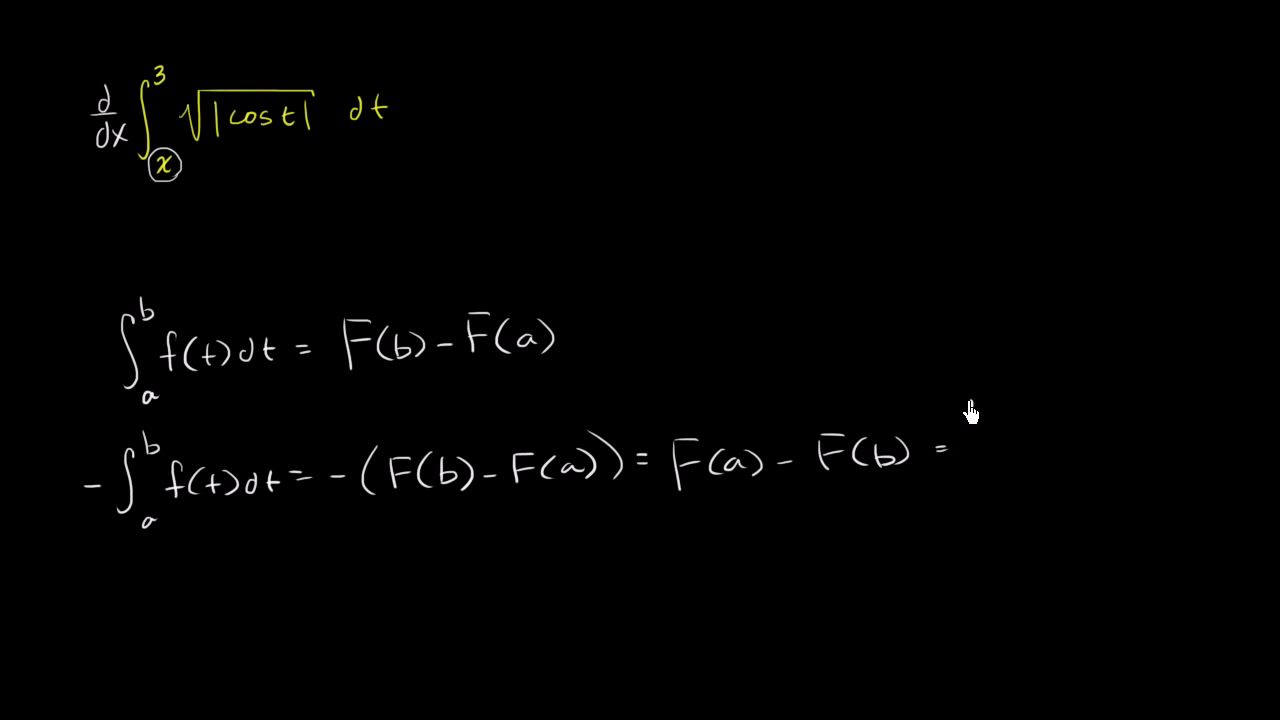 d/dx ∫_x^3 √|cos t| dt
∫_a^b f(t)dt = F(b) - F(a)
- ∫_a^b f(t)dt = - (F(b) - F(a)) = F(a) - F(b) =